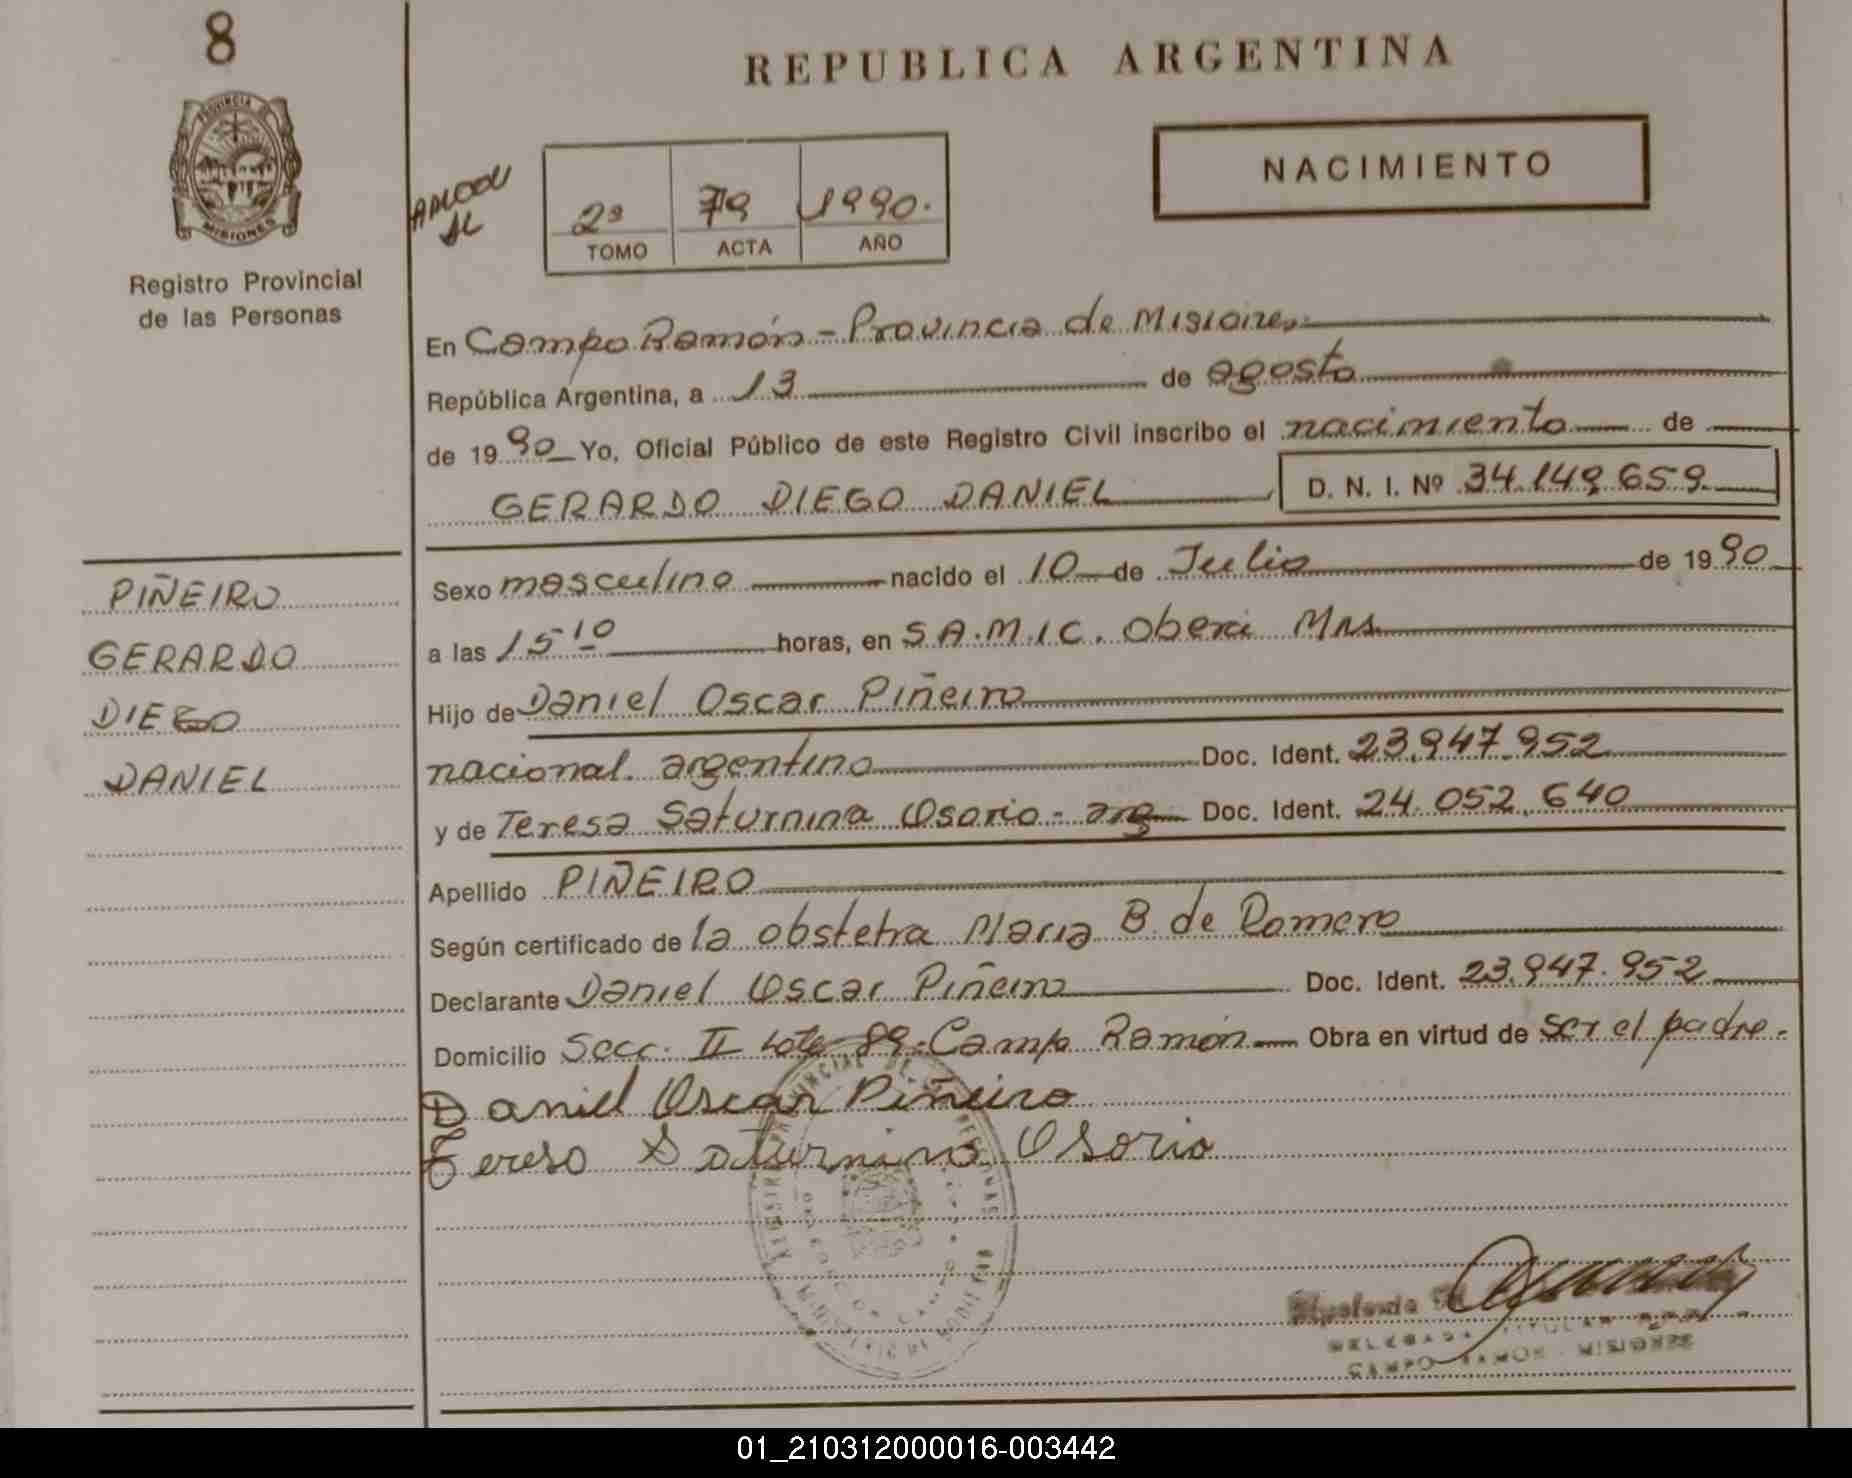 8
REPUBLICA ARGENTINA
PROVINCIA DE
MISIONES
NACIMIENTO
2º 79 1990.
TOMO ACTA AÑO
Registro Provincial
de las Personas
En Campo Ramón - Provincia de Misiones
República Argentina, a 13 de agosto
de 1990 Yo, Oficial Público de este Registro Civil inscribo el nacimiento de
GERARDO DIEGO DANIEL D. N. I. Nº 34.149.659
PIÑEIRO
GERARDO
DIEGO
DANIEL
Sexo masculino nacido el 10 de Julio de 1990
a las 15 10 horas, en S.A.M.I.C. Oberá Mns.
Hijo de Daniel Oscar Piñeiro
nacional. argentino Doc. Ident. 23.947.952
y de Teresa Saturnina Osorio - arg Doc. Ident. 24.052.640
Apellido PIÑEIRO
Según certificado de la obstetra Maria B. de Romero
Declarante Daniel Oscar Piñeiro Doc. Ident. 23.947.952
Domicilio Secc. II Lote 89 - Campo Ramón Obra en virtud de ser el padre.
Daniel Oscar Piñeiro
Teresa Saturnina Osorio
DELEGADA TITULAR
CAMPO RAMON - MISIONES
01_210312000016-003442